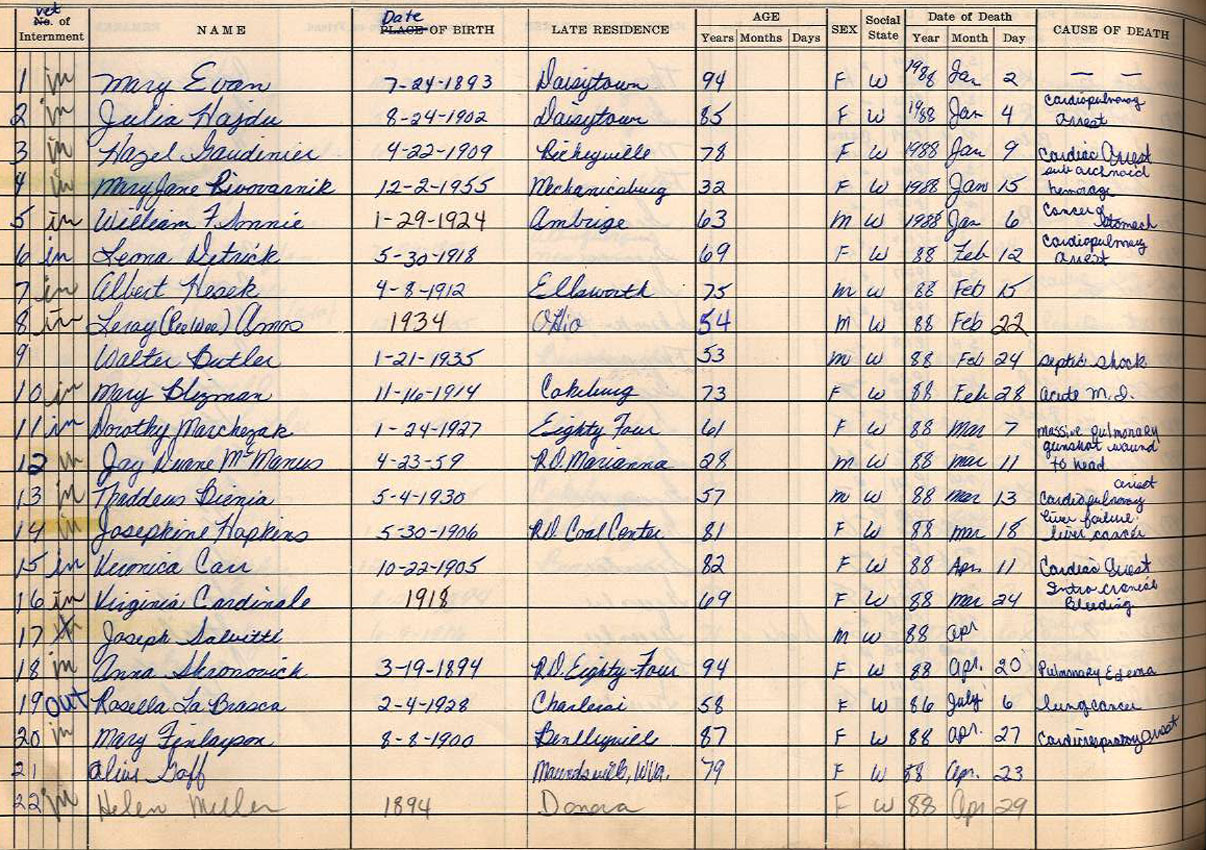 vet No. of Internment NAME Date PLACE OF BIRTH LATE RESIDENCE AGE Years Months Days SEX Social State Date of Death Year Month Day CAUSE OF DEATH
1 in Mary Evan 7-24-1893 Daisytown 94 F W 1988 Jan 2 — —
2 in Julia Hajdu 8-24-1902 Daisytown 85 F W 1988 Jan 4 Cardiopulmonary arrest
3 in Hazel Gaudinier 4-22-1909 78 F W 1988 Jan 9 Cardiac Arrest
4 in Mary Jane 12-2-1955 Mechanicsburg 32 F W 1988 Jan 15 sub archnoid hemorage
5 in William F. 1-29-1924 Ambrige 63 M W 1988 Jan 6 Cancer of Stomach
6 in Leona Detrick 5-30-1918 69 F W 88 Feb 12 Cardiopulmary arrest
7 in Albert Hesek 4-8-1912 Ellsworth 75 m W 88 Feb 15
8 in Leroy (PeeWee) Amos 1934 Ohio 54 M W 88 Feb 22
9 Walter Butler 1-21-1935 53 m W 88 Feb 24 septic shock
10 in Mary 11-16-1914 Cokeburg 73 F W 88 Feb 28 acute M.I.
11 in Dorothy Marchezak 1-24-1927 Eighty Four 61 F W 88 Mar 7 massive pulmonary
12 in Jay Duane McManus 4-23-59 R.D. Marianna 28 m W 88 mar 11 gunshot wound to head
13 in Thaddeus Bienia 5-4-1930 57 m W 88 mar 13 Cardiopulmary arrest
14 in Josephine Hopkins 5-30-1906 R.D. Coal Center 81 F W 88 mar 18 liver failure liver cancer
15 in Veronica Carr 10-22-1905 82 F W 88 Apr 11 Cardiac Arrest
16 in Virginia Cardinale 1918 69 F W 88 mar 24 Intra cranial Bleeding
17 Joseph Salvitti m W 88 apr
18 in Anna Skronovick 3-19-1894 R.D. Eighty-Four 94 F W 88 apr. 20 Pulmonary Edema
19 out Rosella La Brasca 2-4-1928 Charleroi 58 F W 86 July 6 lung cancer
20 in Mary Finlayson 8-8-1900 Bentleyville 87 F W 88 apr. 27 arrest
21 Goff W.Va. 79 F W 88 Apr. 23
22 in Helen Miller 1894 Donora F W 88 Apr 29